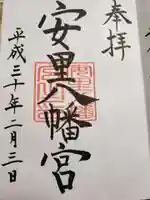 奉拝
安里八幡宮
平成三十年二月三日